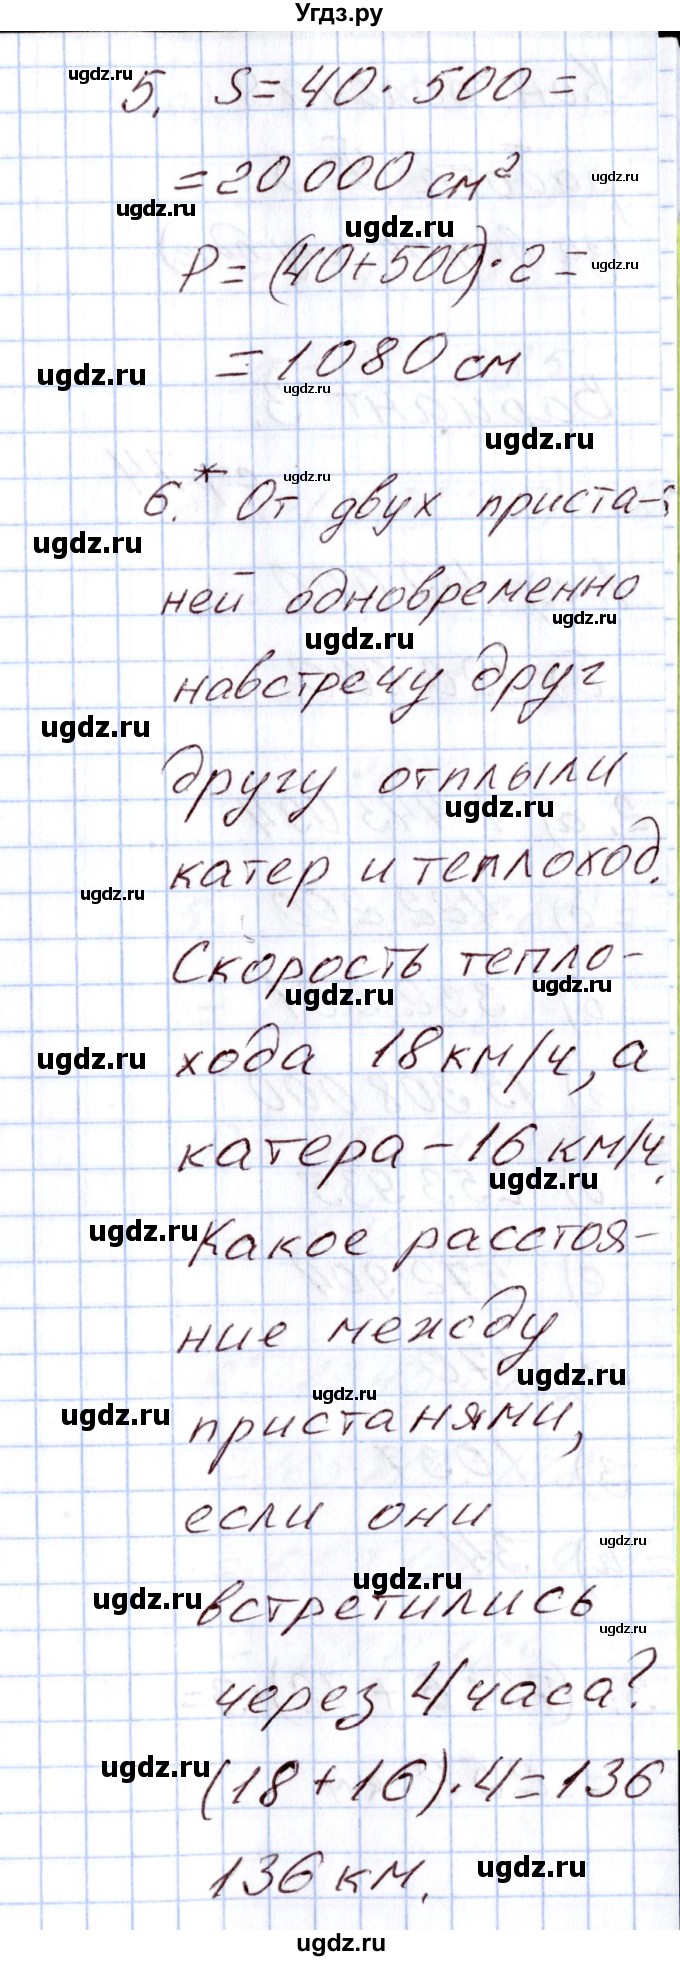 Угдз.ру
ugdz.ru
5. S = 40 · 500 =
= 20 000 см²
ugdz.ru
ugdz.ru
ugdz.ru
P = (40+500) · 2 =
ugdz.ru
= 1080 см
ugdz.ru
ugdz.ru
ugdz.ru
ugdz.ru
6.* От двух приста-
ugdz.ru
ней одновременно
ugdz.ru
ugdz.ru
навстречу друг
ugdz.ru
другу отплыли
ugdz.ru
катер и теплоход.
ugdz.ru
Скорость тепло-
ugdz.ru
ugdz.ru
хода 18 км/ч, а
ugdz.ru
катера – 16 км/ч.
ugdz.ru
ugdz.ru
Какое расстоя-
ние между
ugdz.ru
ugdz.ru
ugdz.ru
пристанями,
если они
ugdz.ru
ugdz.ru
ugdz.ru
встретились
ugdz.ru
через 4 часа?
ugdz.ru
(18 + 16) · 4 = 136
136 км.
ugdz.ru
ugdz.ru